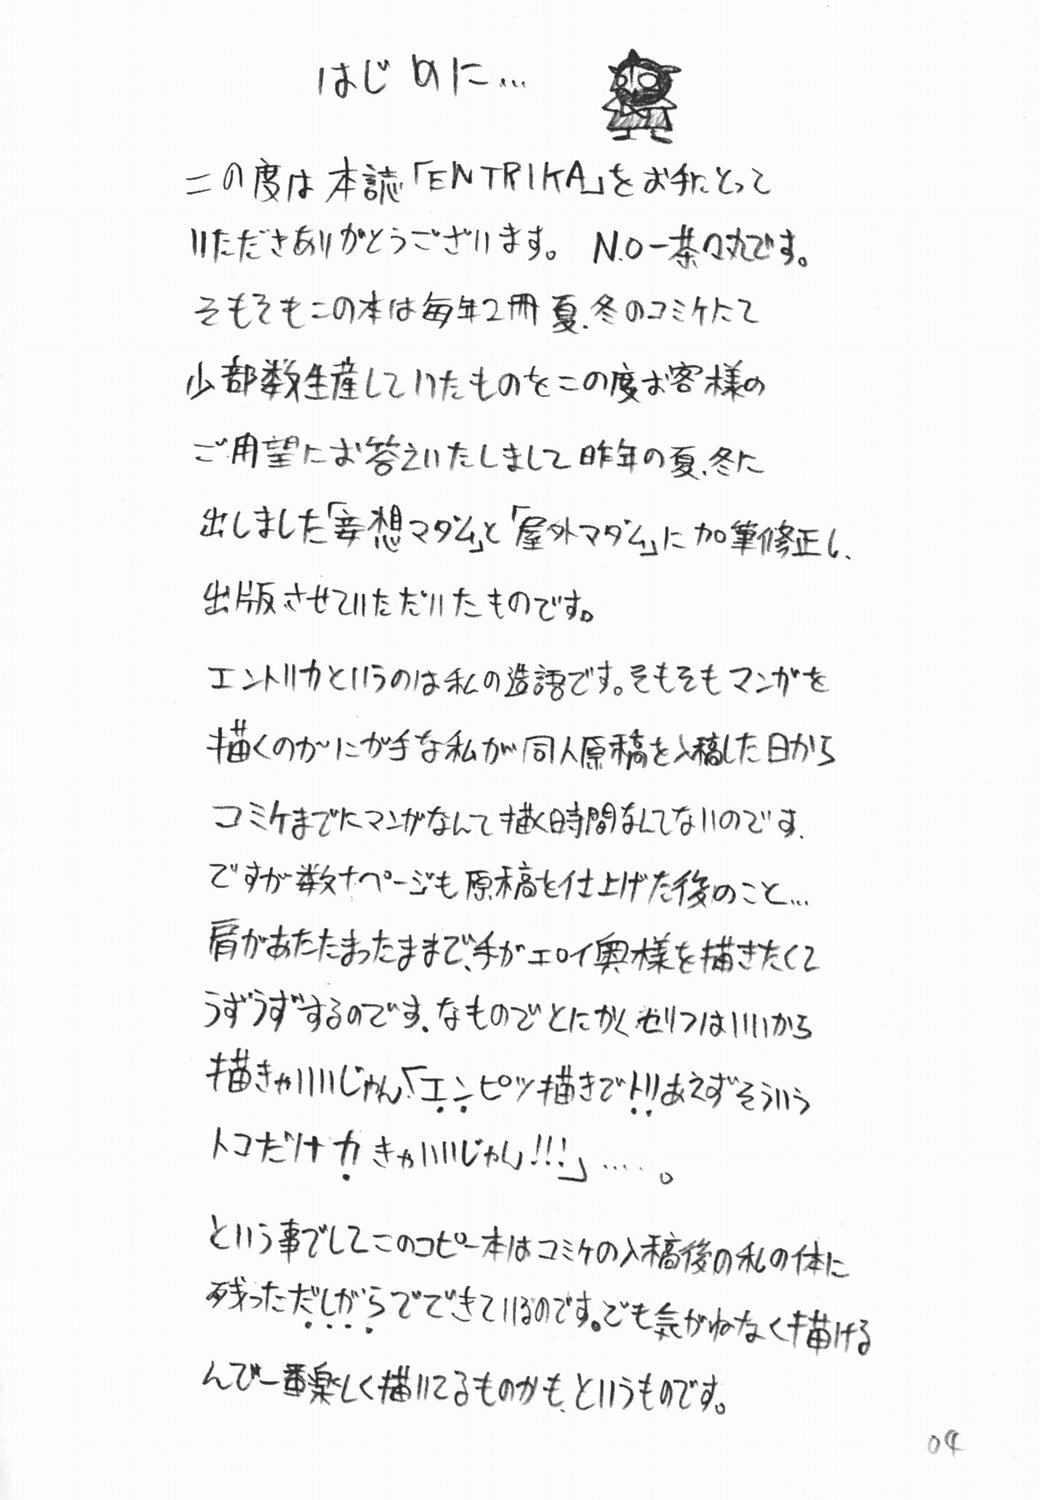 はじめに…
この度は本誌「ENTRIKA」をお手にとって
いただきありがとうございます。 N.O-茶々丸です。
そもそもこの本は毎年2冊夏、冬のコミケにて
少部数生産していたものをこの度お客様の
ご用望にお答えいたしまして昨年の夏、冬に
出しました「妄想マダム」と「屋外マダム」に加筆修正し、
出版させていただいたものです。
エントリカというのは私の造語です。そもそもマンガを
描くのがにが手な私が同人原稿を入稿した日から
コミケまでにマンガなんて描く時間なんてないのです、
ですが数十ページも原稿を仕上げた後のこと…
肩があたたまったままで、手がエロイ奥様を描きたくて
うずうずするのです、なものでとにかくセリフはいいから
描きゃいいじゃん、「エンピツ描きでトリあえずそういう
トコだけカきゃいいじゃん!!!」……。
という事でしてこのコピー本はコミケの入稿後の私の体に
残っただしがらでできているのです。でも気がねなく描ける
んで一番楽しく描いてるものかも、というものです。
04